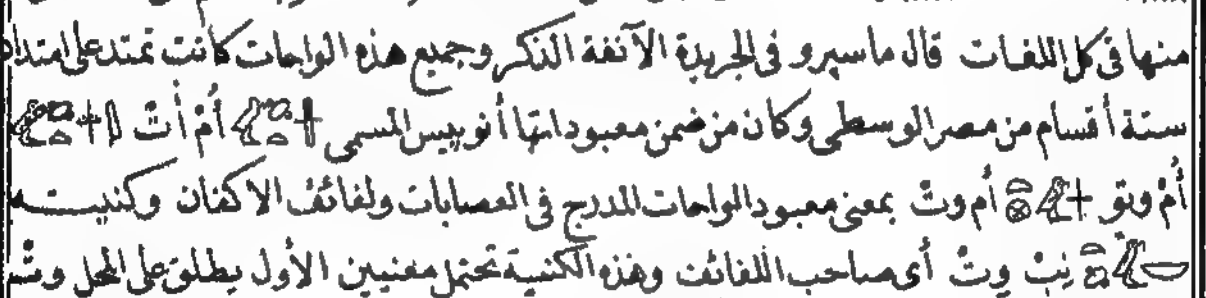 منها فى كل اللغات قال ماسپرو فى الجريدة الآنفة الذكر وجميع هذه الواحات كانت تمتد على امتداد
ستة أقسام من مصر الوسطى وكان من ضمن معبوداتها أنوبيس المسمى أُمْ أُتْ
أُمْ وِتو أم وتْ بمعنى معبود الواحات المدرج فى العصابات ولفائف الاكفان وكنيسته
نِبْ وِتْ أى صاحب اللفائف وهذه الكنية تحتمل معنيين الأول يطلق على المحل